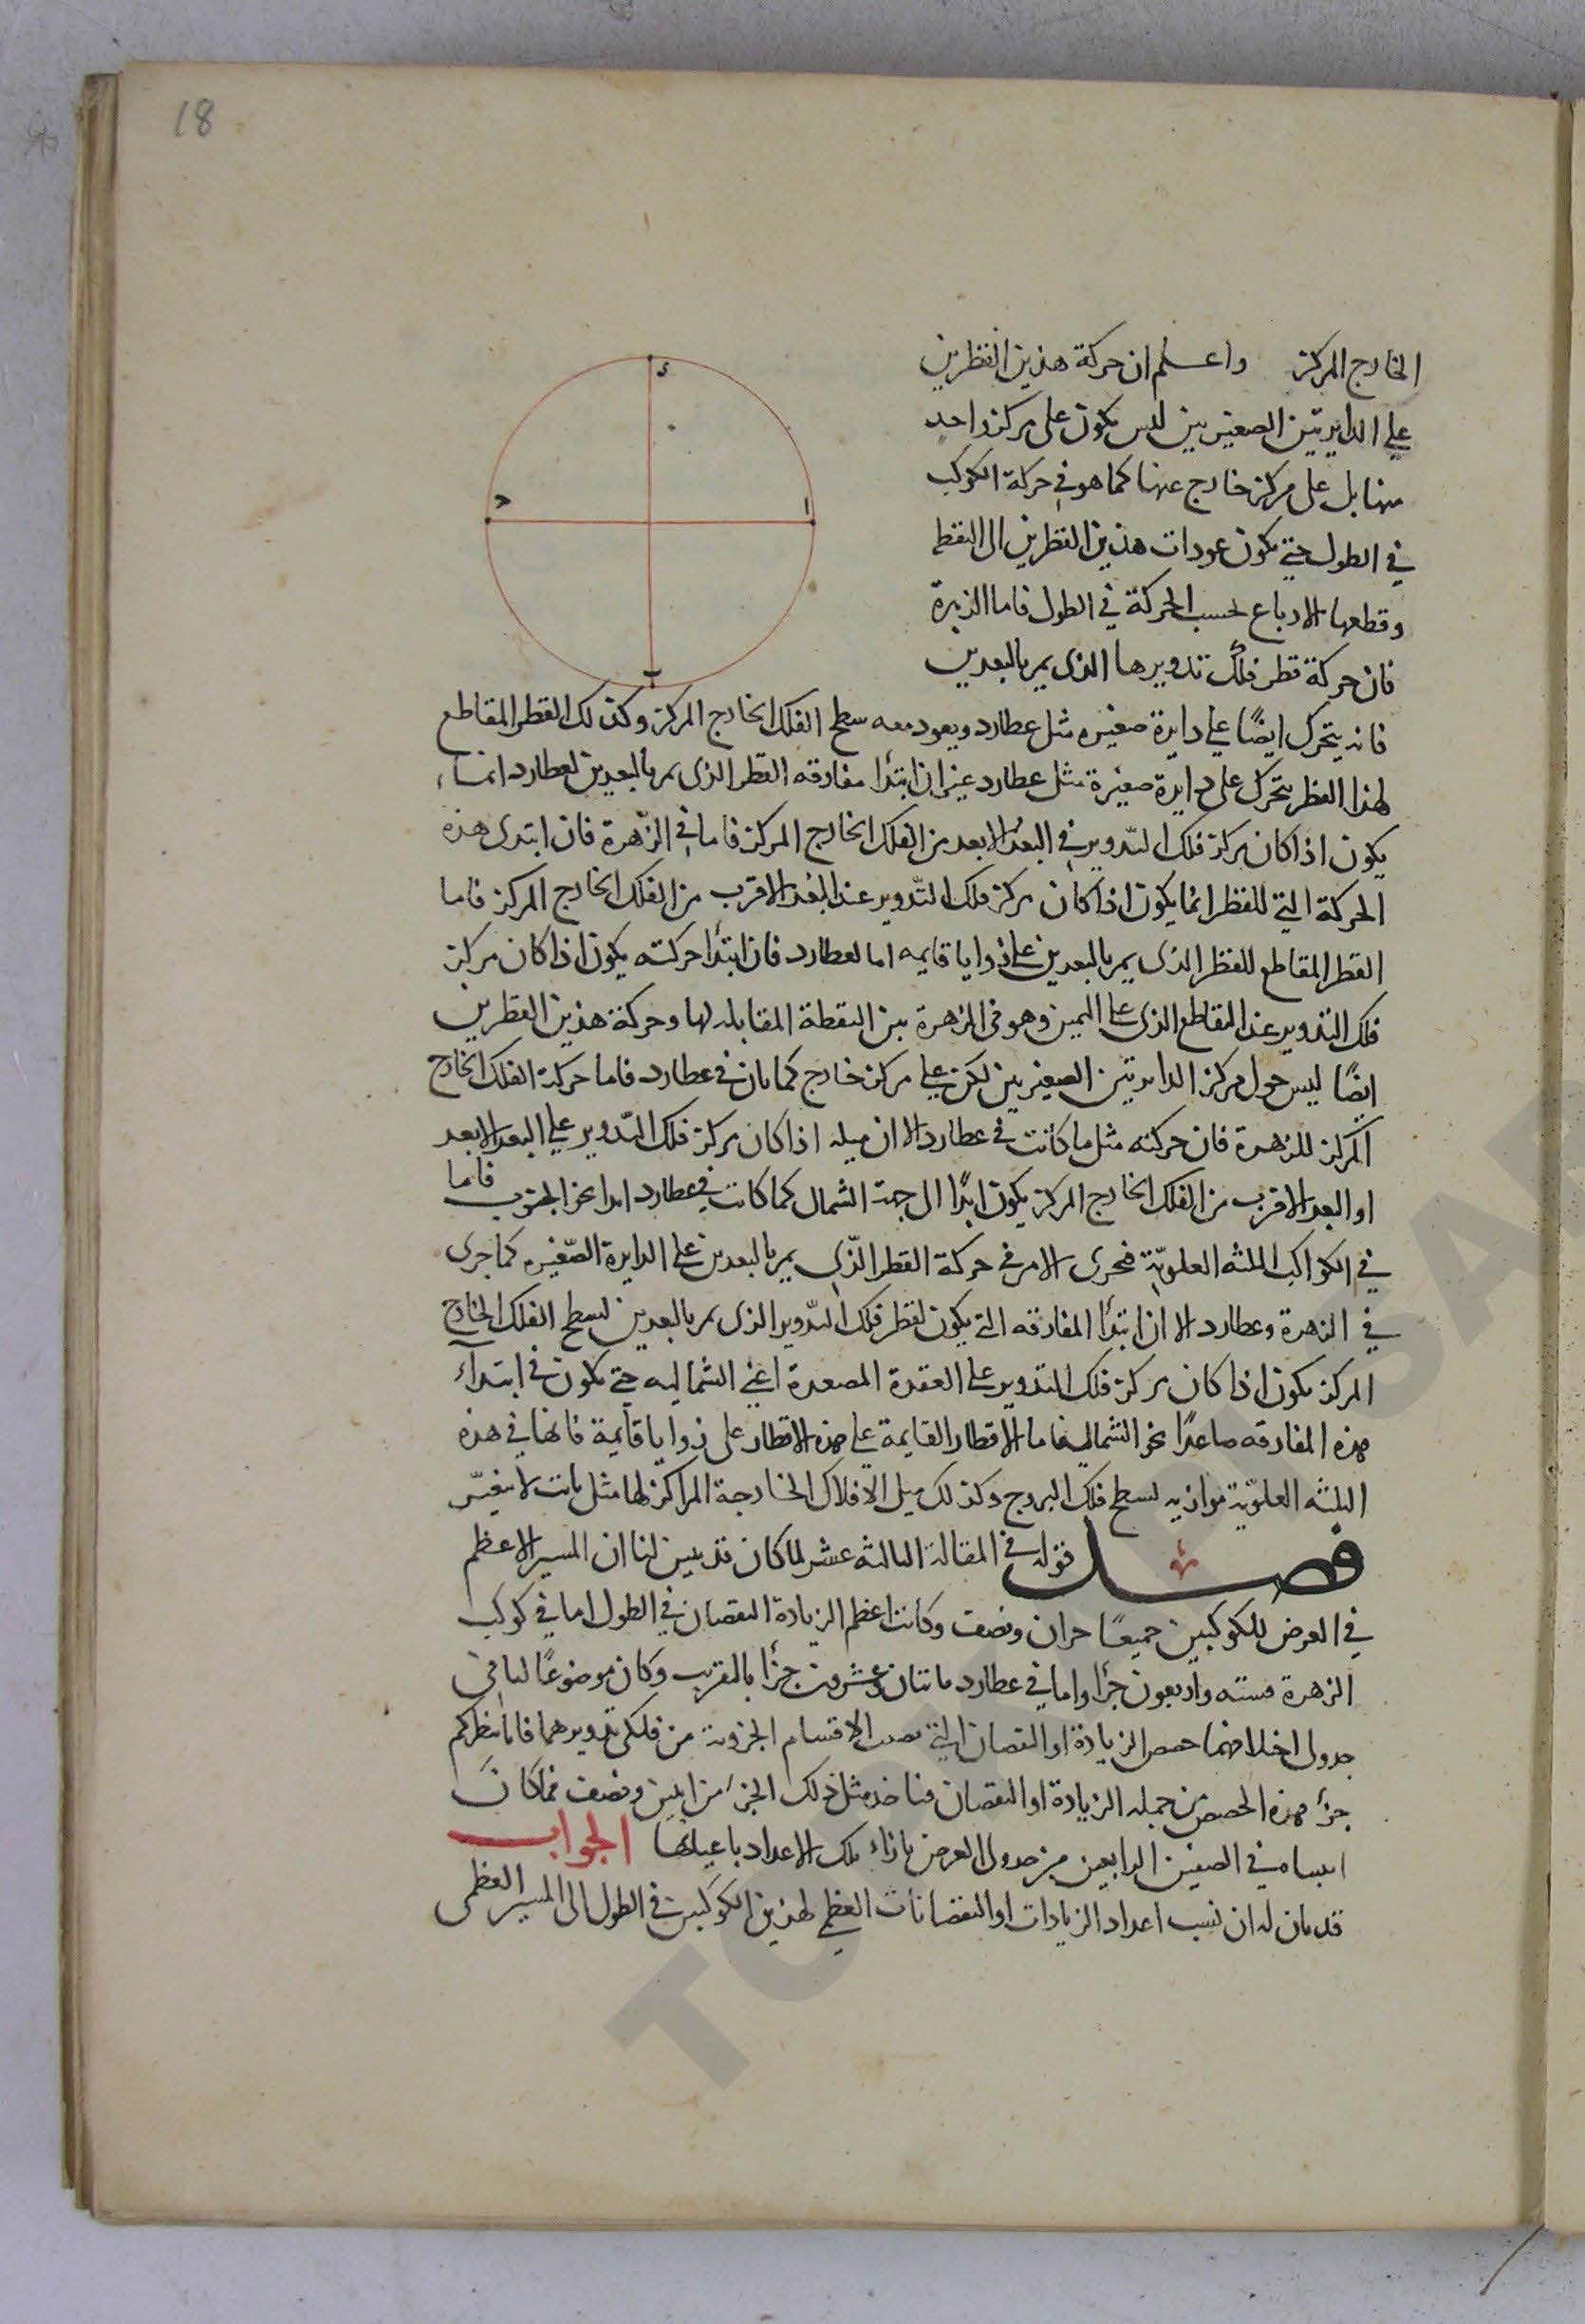 18
الخارج المركز واعلم ان حركة هذين القطرين
على الدايرتين الصغيرتين ليس يكون على مركز واحد
منها بل على مركز خارج عنها كما هو في حركة الكوكب
في الطول حتى يكون عودات هذين القطرين الى النقط
وقطعها الارباع بحسب الحركة في الطول فاما الزهرة
فان حركة قطر فلك تدويرها الذى يمر بالبعدين
فانه يتحرك ايضًا على دايرة صغيره مثل عطارد ويعود معه سطح الفلك الخارج المركز وكذلك القطر المقاطع
لهذا القطر يتحرك على دايرة صغيرة مثل عطارد غير ان ابتدأ مفارقه القطر الذى يمر بالبعدين لعطارد انما
يكون اذا كان مركز فلك التدوير في البعد الابعد من الفلك الخارج المركز فاما في الزهرة فان ابتدى هذه
الحركة التي للقطر انما يكون اذا كان مركز فلك التدوير عند البعد الاقرب من الفلك الخارج المركز فاما
القطر المقاطع للقطر الذى يمر بالبعدين على زوايا قايمه اما لعطارد فان ابتدأ حركته يكون اذا كان مركز
فلك التدوير عند التقاطع الذى على اليمين وهو في الزهرة بين النقطة المقابله لها وحركة هذين القطرين
ايضًا ليس حول مركز الدايرتين الصغيرتين لكن على مركز خارج كما بان في عطارد فاما حركة الفلك الخارج
المركز للزهرة فان حركته مثل ما كانت في عطارد الا ان ميله اذا كان مركز فلك التدوير على البعد الابعد
او البعد الاقرب من الفلك الخارج المركز يكون ابدًا الى جهة الشمال كما كانت في عطارد ابدا نحو الجنوب فاما
في الكواكب الثلثه العلوية فيجرى الامر في حركة القطر الذى يمر بالبعدين على الدايرة الصغيره كما جرى
في الزهرة وعطارد الا ان ابتدأ المفارقه التي يكون لقطر فلك التدوير الذى يمر بالبعدين لسطح الفلك الخارج
المركز يكون اذا كان مركز فلك التدوير على العقدة المصعدة اعني الشماليه حتى يكون في ابتداء
هذه المفارقه صاعدًا نحو الشمال فاما الاقطار القايمة على هذه الاقطار على زوايا قايمة فانها في هذه
الثلثه العلوية موازيه لسطح فلك البروج وكذلك ميل الافلاك الخارجة المراكز لها مثل ثابت لا يتغير
فصل قوله في المقالة الثالثه عشر لما كان قد تبين لنا ان المسير الاعظم
في العرض للكوكبين جميعًا جزان ونصف وكانت اعظم الزيادة النقصان في الطول اما في كوكب
الزهرة فسته واربعون جزأ واما في عطارد ماتنان وعشرون جزأ بالتقريب وكان موضوعًا لنا في
جدول اختلافهما حصص الزيادة او النقصان التي الاقسام الجزوية من فلكى تدويرهما فانا ننظر كم
جزأ هذه الحصص من جمله الزيادة او النقصان فناخذ مثل ذلك الجزء من اثنين ونصف فما كان
اثبتناه في الصفين الرابعين من جدول العرض بازاء تلك الاعداد باعيانها الجواب
قد بان له ان نسب اعداد الزيادات او النقصانات العظمى لهذين الكوكبين في الطول الى المسير العظمى